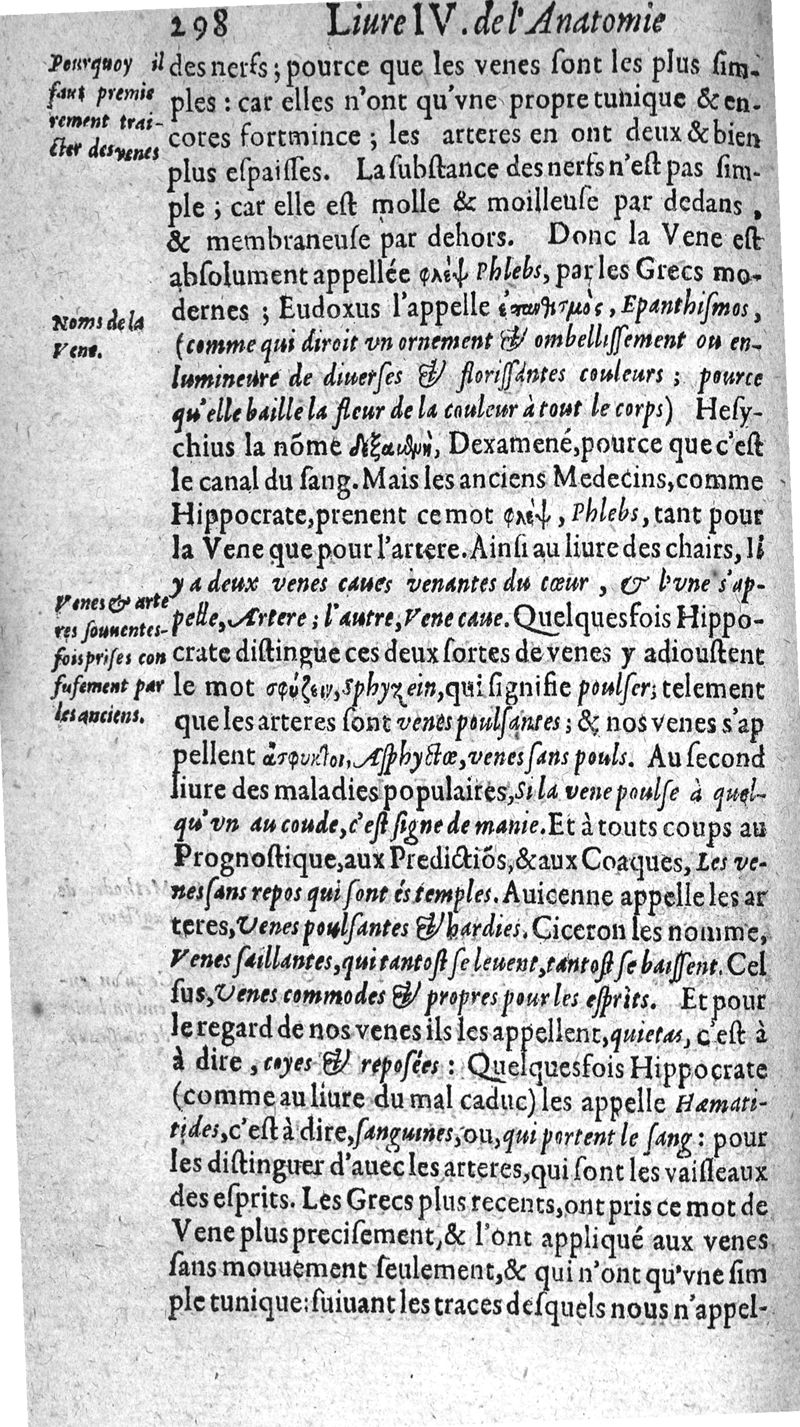 298 Liure IV. de l'Anatomie
Pourquoy il
faut premie
rement trai-
cter des venes
des nerfs ; pource que les venes ſont les plus ſim-
ples : car elles n'ont qu'vne propre tunique & en-
cores fort mince ; les arteres en ont deux & bien
plus eſpaiſſes. La ſubſtance des nerfs n'eſt pas ſim-
ple ; car elle eſt molle & moilleuſe par dedans ,
& membraneuſe par dehors. Donc la Vene eſt
abſolument appellée φλὲψ Phlebs, par les Grecs mo-
Noms de la
Vene.
dernes ; Eudoxus l'appelle ἐπανθισμὸς, Epanthiſmos,
(comme qui diroit vn ornement & ombelliſſement ou en-
lumineure de diuerſes & floriſſantes couleurs ; pource
qu'elle baille la fleur de la couleur à tout le corps) Heſy-
chius la nõme Δεξαμενὴ, Dexamené, pource que c'eſt
le canal du ſang. Mais les anciens Medecins, comme
Hippocrate, prenent ce mot φλὲψ, Phlebs, tant pour
la Vene que pour l'artere. Ainſi au liure des chairs, Il
Venes & arte
res ſouuentes-
fois priſes con
fuſement par
les anciens.
y a deux venes caues venantes du cœur , & l'vne s'ap-
pelle, Artere ; l'autre, Vene caue. Quelquesfois Hippo-
crate diſtingue ces deux ſortes de venes y adiouſtent
le mot σφύζειν, Sphyzein, qui ſignifie poulſer; telement
que les arteres ſont venes poulſantes ; & nos venes s'ap
pellent ἄσφυκτοι, Aſphyctœ, venes ſans pouls. Au ſecond
liure des maladies populaires, Si la vene poulſe à quel-
qu'vn au coude, c'eſt ſigne de manie. Et à touts coups au
Prognoſtique, aux Predictiõs, & aux Coaques, Les ve-
nes ſans repos qui ſont és temples. Auicenne appelle les ar
teres, Venes poulſantes & hardies. Ciceron les nomme,
Venes ſaillantes, qui tantoſt ſe leuent, tantoſt ſe baiſſent. Cel
ſus, Venes commodes & propres pour les eſprits. Et pour
le regard de nos venes ils les appellent, quietas, c'eſt à
à dire , coyes & repoſées : Quelquesfois Hippocrate
(comme au liure du mal caduc) les appelle Hæmati-
tides, c'eſt à dire, ſanguines, ou, qui portent le ſang : pour
les diſtinguer d'auec les arteres, qui ſont les vaiſſeaux
des eſprits. Les Grecs plus recents, ont pris ce mot de
Vene plus preciſement, & l'ont appliqué aux venes
ſans mouuement ſeulement, & qui n'ont qu'vne ſim
ple tunique: ſuiuant les traces deſquels nous n'appel-